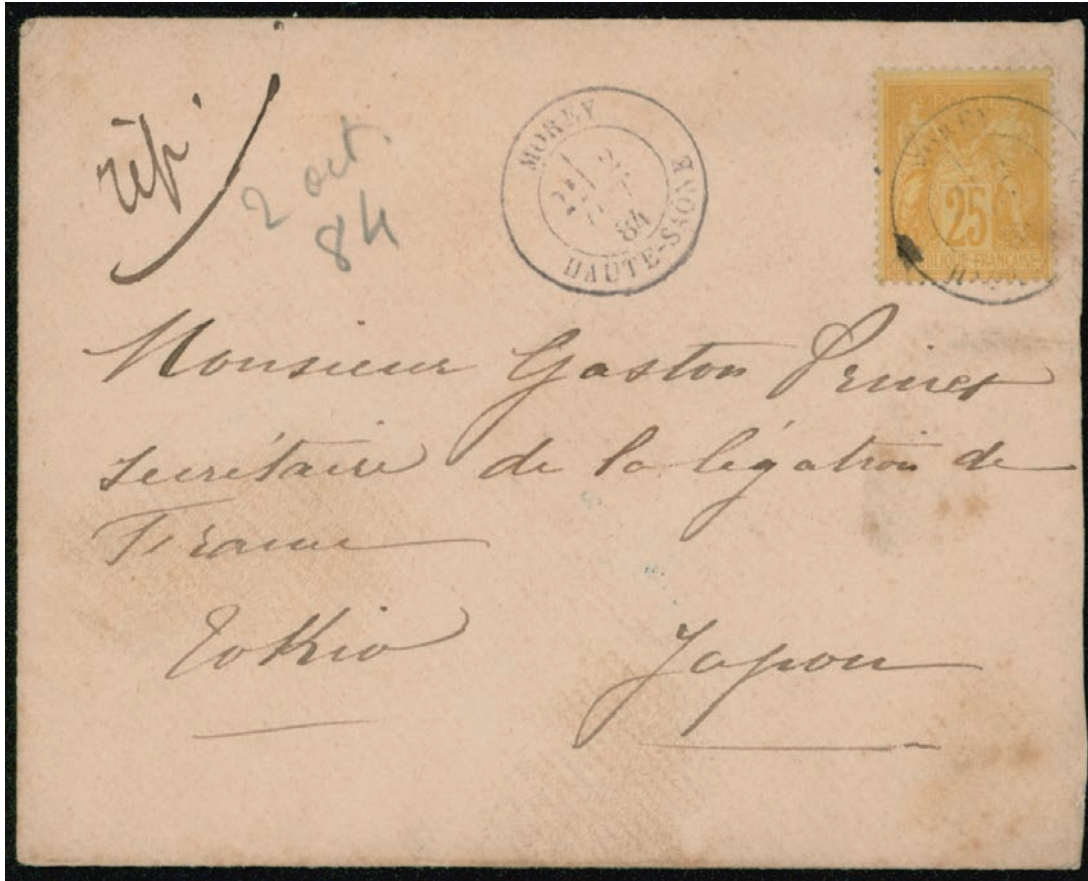 rép.
2 oct.
84
MOREY
2E
2
84
HAUTE-SAONE
MOREY
25
REPUBLIQUE FRANÇAISE
Monsieur Gaston Prinet
secrétaire de la légation de
France
Tokio Japon